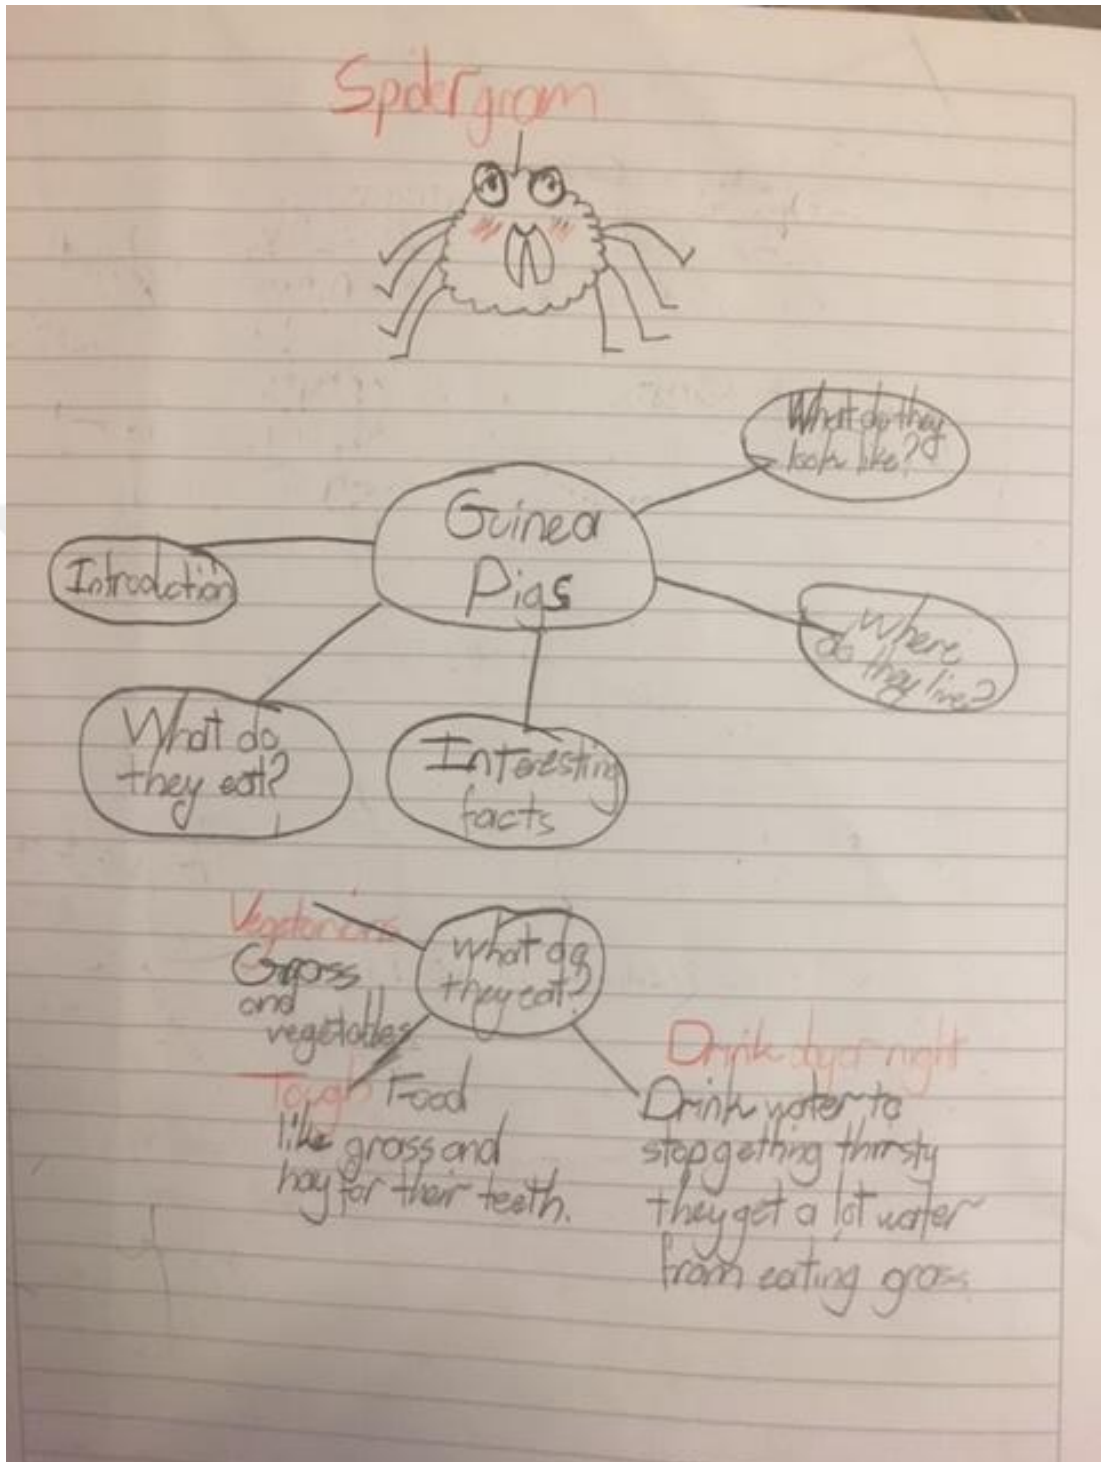 Spidergram
What do they
look like?
Guinea
Pigs
Introduction
Where
do they live?
What do
they eat?
Interesting
facts
What do
they eat?
Vegetarians
Grass
and
vegetables
Tough Food
like grass and
hay for their teeth.
Drink day or night
Drink water to
stop getting thirsty
they get a lot water
from eating grass